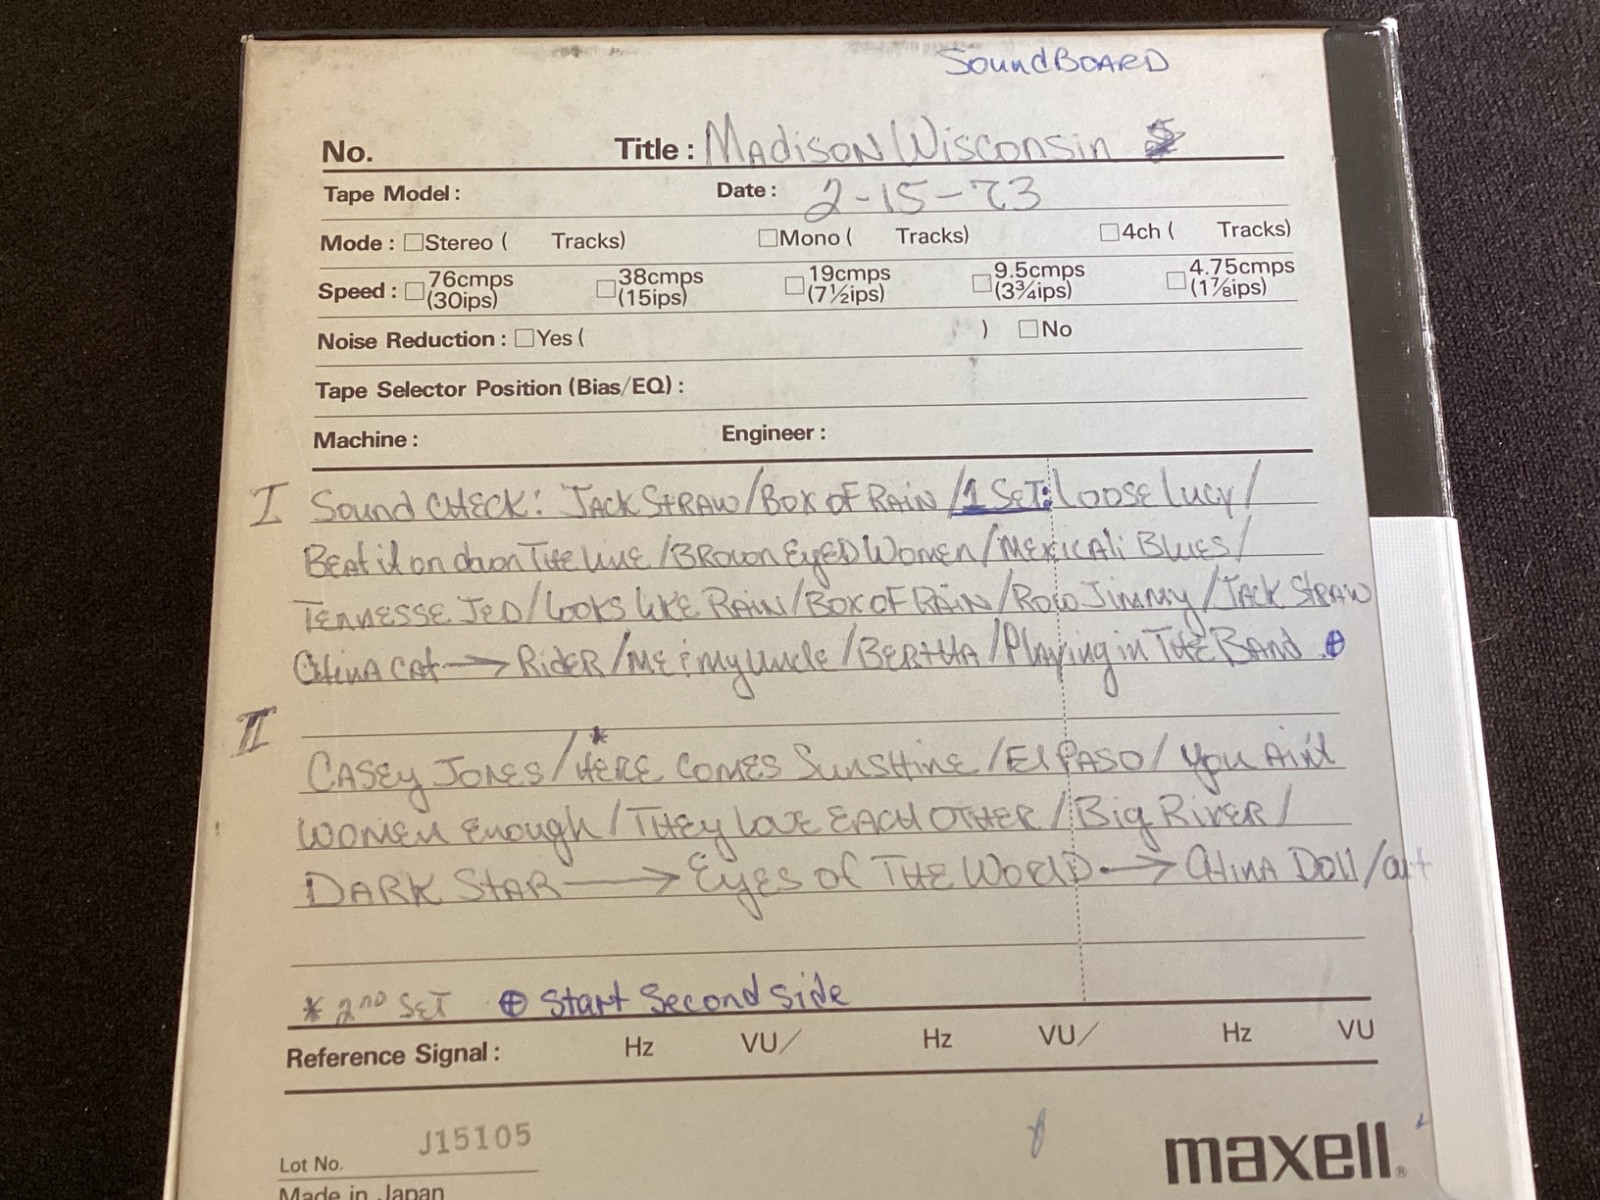 SoundBOARD
No. Title: MADISON WISCONSIN
Tape Model: Date: 2-15-73
Mode: □Stereo ( Tracks) □Mono ( Tracks) □4ch ( Tracks)
Speed: □76cmps (30ips) □38cmps (15ips) □19cmps (7½ips) □9.5cmps (3¾ips) □4.75cmps (1⅞ips)
Noise Reduction: □Yes ( ) □No
Tape Selector Position (Bias/EQ):
Machine: Engineer:
I Sound CHECK: JACK STRAW/BOX OF RAIN/1 SET: LOOSE LUCY/
BEAt it on down THE LINE/BROWN EyED WOMEN/MEXICALi BLUES/
TENNESSE JED/LOOKS LIKE RAIN/BOX OF RAIN/ROW JIMMY/JACK STRAW
CHINA CAT→RIDER/ME & my UNCLE/BERTHA/Playing in THE BAND ⊕
II
CASEY JONES/*HERE COMES SUNSHINE/El PASO/you Ain't
WOMEN Enough/THEy LOVE EACH OTHER/Big RIVER/
DARK STAR→Eyes of THE WORLD→CHINA DOLL/cut
* 2ND SET ⊕ Start Second side
Reference Signal: Hz VU/ Hz VU/ Hz VU
Lot No. J15105
Made in Japan
maxell®